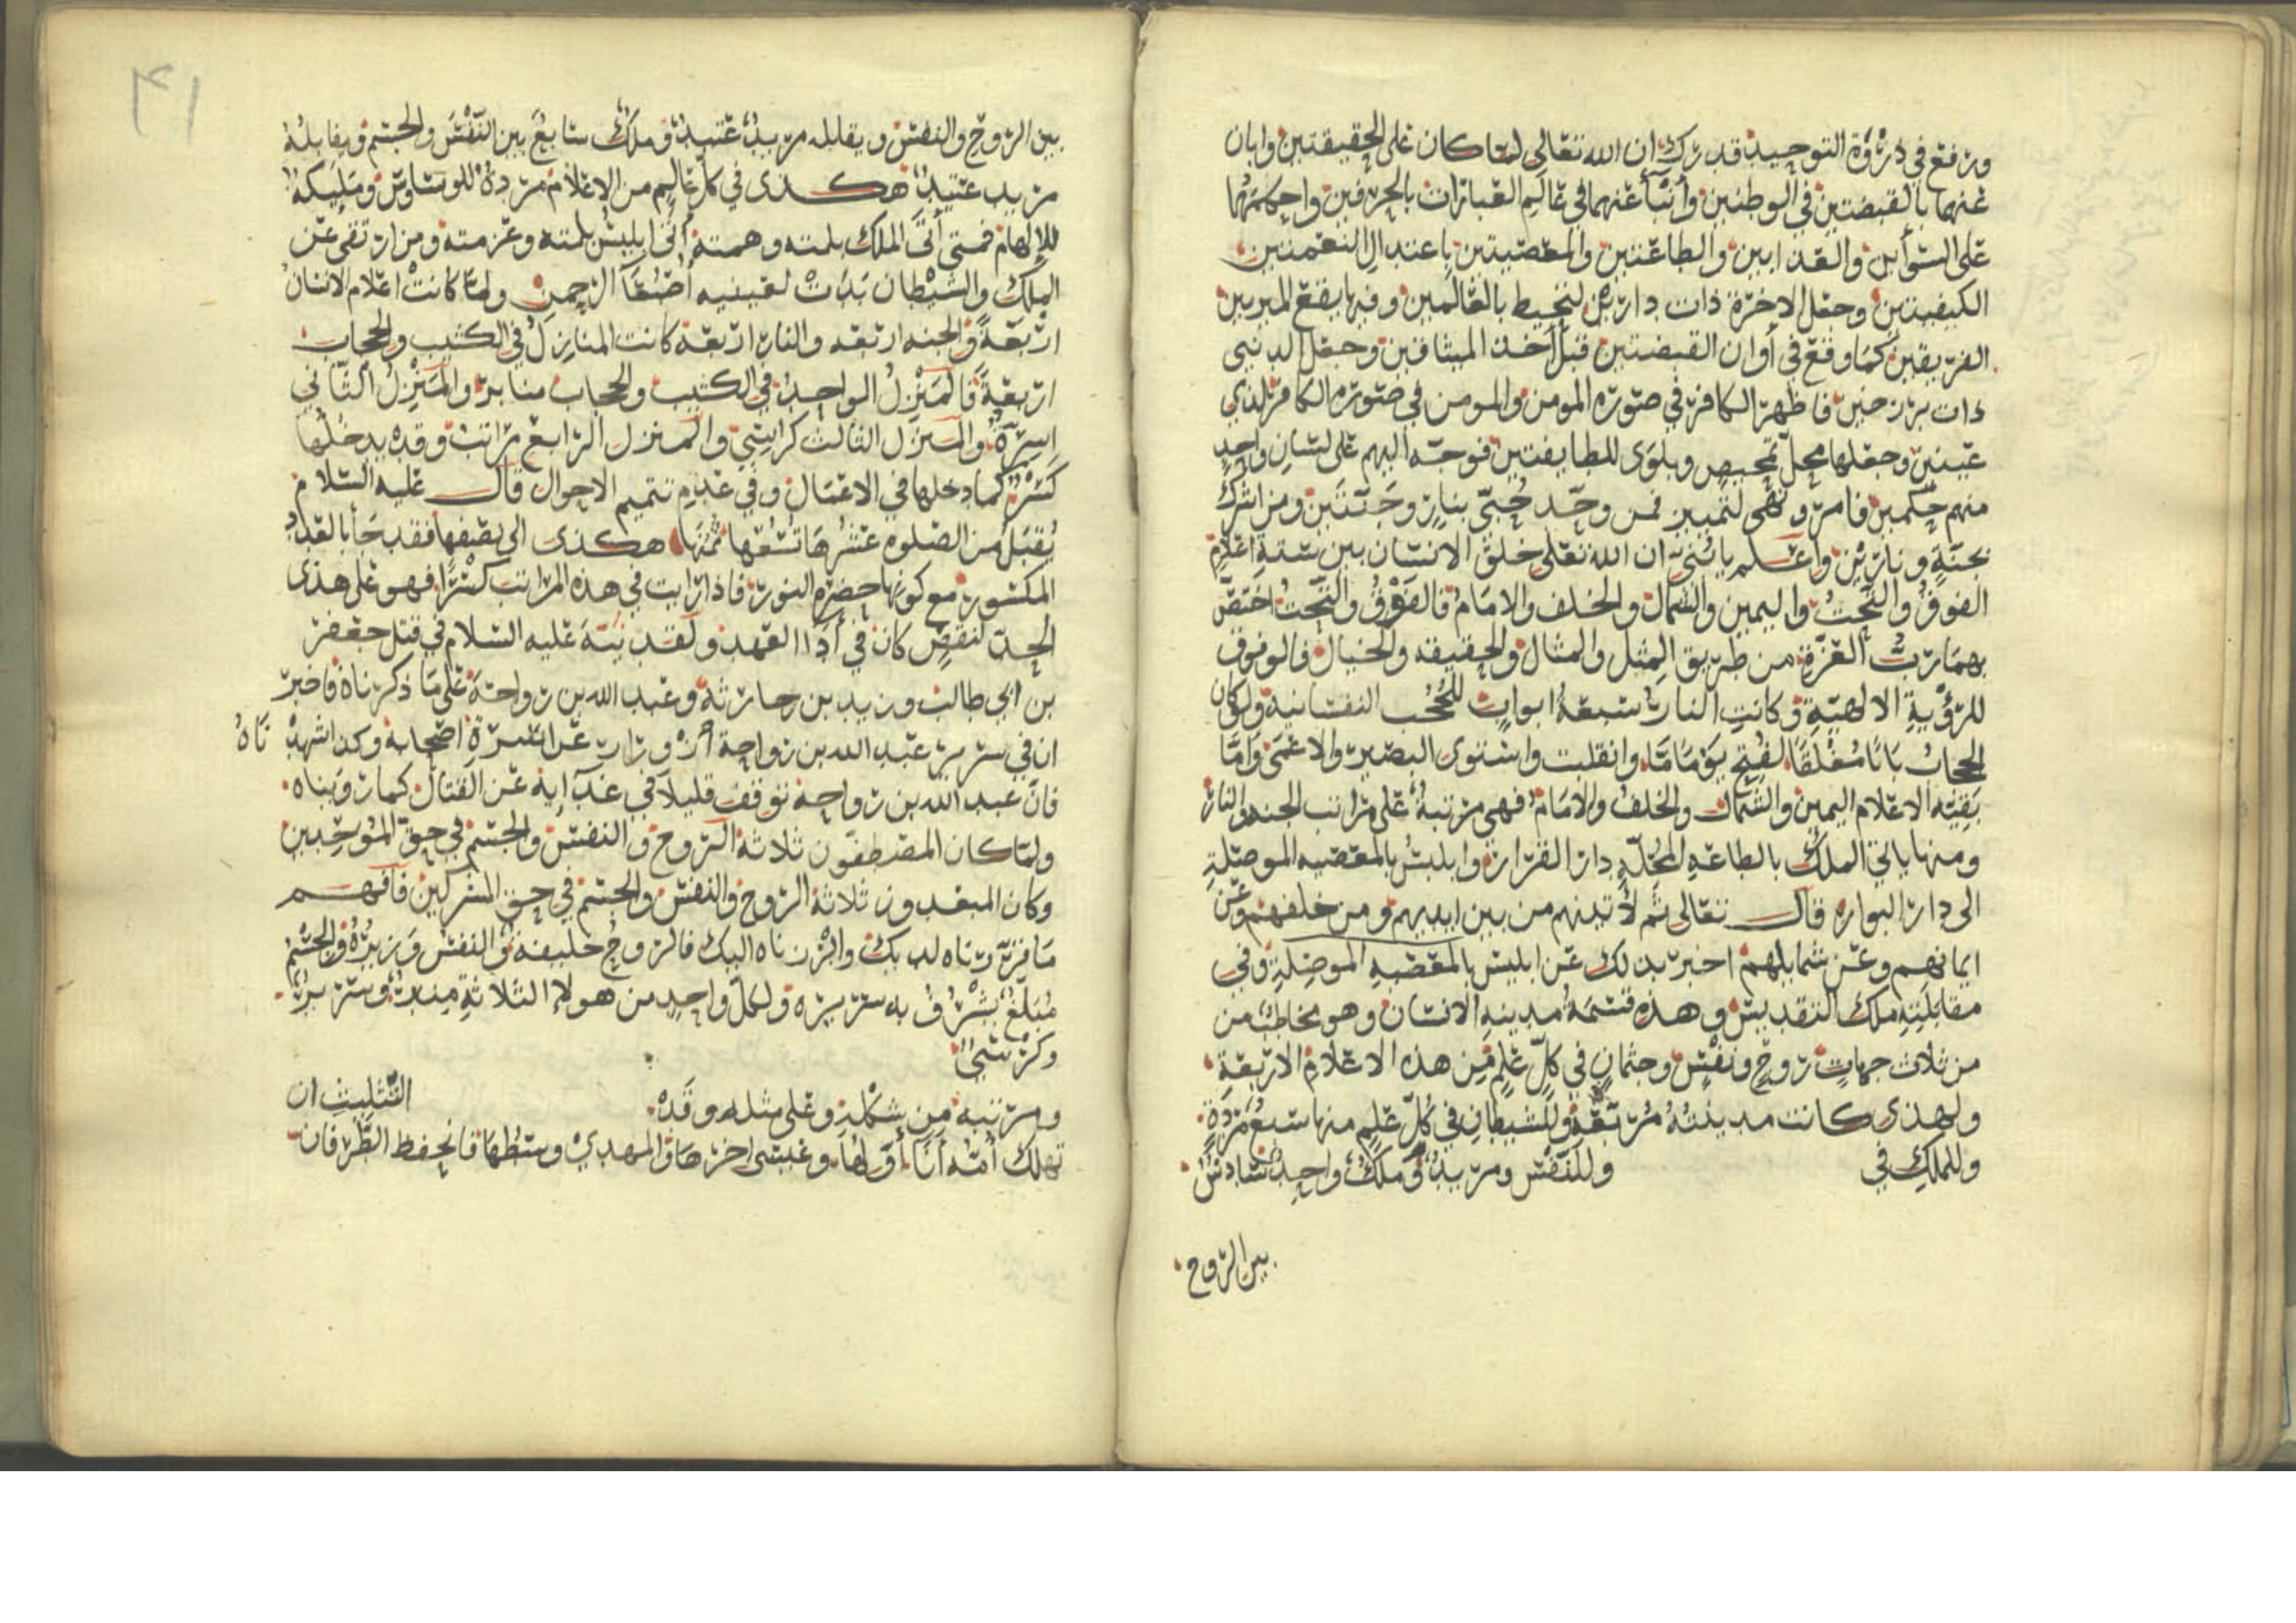 ورفع في ذروة التوحيد قدرك ان الله تعالى لما كان على الحقيقتين وابان
عنهما بالقبضتين في الوطنين وأنبأ عنهما في عالم العبارات بالحرفين واحكمها
على السوأين والعذابين والطاعتين والمعصيتين باعتدال النعمتين
الكيفيتين وجعل الاخرة ذات دارين لتحيط بالعالمين وفيها يقع الميز بين
الفريقين كما وقع في أوان القبضتين قبل أخذ الميثاقين وجعل الدنيى
ذات برزخين فاظهر الكافر في صوره المومن والمومن في صوره الكافر لذي
عينين وجعلها محل تمحيص وبلوى للطايفتين فوجه اليهم على لسان واحد
منهم حكمين فامر ونهى لتمييز فمن وحد حبي بنار وجنتين ومن اشرك
بجنة ونارين واعلم يا بني ان الله تعلى خلق الانسان بين ستة اعلام
الفوق والتحت واليمين والشمال والخلف والامام فالفوق والتحت اختص
بهما رب العزة من طريق المثل والمثال والحقيقه والخيال فالوقوف
للرؤية الالهية وكانت النار سبعة ابواب للحجب النفسانية ولو كان
الحجاب بابا مغلقا لفتح يوما ما وانقلبت واستوى البصير والاعمى واما
بقيته الاعلام اليمين والشمال والخلف والامام فهي مرتبة على مراتب الجنه والنار
ومنها ياتي الملك بالطاعه المحله دار القرار وابليس بالمعصيه الموصلة
الى دار البوار قال تعالى ثم لأتينهم من بين ايديهم ومن خلفهم وعن
ايمانهم وعن شمايلهم اخبر بذلك عن ابليس بالمعصيه الموصلة وفي
مقابلته ملك التقديس وهذه قسمة مدينه الانسان وهو مخاطب من
من ثلاث جهات روح ونفس وجثمان في كل علم من هذه الاعلام الاربعة
ولهذى كانت مدينته مربعة وللشيطان في كل علم منها سبع مردة
وللملك في وللنفس ومريد وملك واحد سادس
بين الروح
٤١
بين الروح والنفس ويقابله مريد عتيد وملك سابع بين النفس والجسم ويقابله
مريد عتيد هكذى في كل عالم من الاعلام مردة للوساوس ومليكه
للإلهام فمتى أتى الملك بلمته وهمته أتى ابليس بلمته وعزمته ومن ارتقى عن
الملك والشيطان بدت لعينيه أصبعا الرحمن ولما كانت اعلام الانسان
اربعة والجنه اربعه والنار اربعة كانت المنازل في الكثيب والحجاب
اربعة فالمنزل الواحد في الكثيب والحجاب منابر والمنزل الثاني
اسرة والمنزل الثالث كراسي والمنزل الرابع مراتب وقد يدخلها
كسر كما دخلها في الاعمال وفي عدم تتميم الاحوال قال عليه السلام
يقبل من الصلوه عشرها تسعها ثمنها هكذى الى نصفها فقد جأ بالعدد
المكسور مع كونها حضره النور فاذا رايت في هذه المراتب كسرا فهو على هذى
الحد لنقص كان في أدا العهد ولقد نبه عليه السلام في قتل جعفر
بن ابي طالب وزيد بن حارثة وعبد الله بن رواحة على ما ذكرناه فاخبر
ان في سرير عبد الله بن رواحة ازورارا عن اسرة اصحابه وكذا شهدناه
فان عبد الله بن رواحة توقف قليلا في غدايه عن القتال كما رويناه
ولما كان المصطفون ثلاثة الروح والنفس والجسم في حق الموحدين
وكان المبعدون ثلاثة الروح والنفس والجسم في حق المشركين فافهم
ما قررناه لديك وابرزناه اليك فالروح خليفة والنفس وزيره والجسم
مبلغ يشرف به سريره ولكل واحد من هولا الثلاثة منبر وسرير
وكرسي
ومرتبه من شكله وعلى مثله وقده التثليث ان
تهلك أمة أنا أولها وعيسى اخرها والمهدي وسطها فانحفظ الطرفان